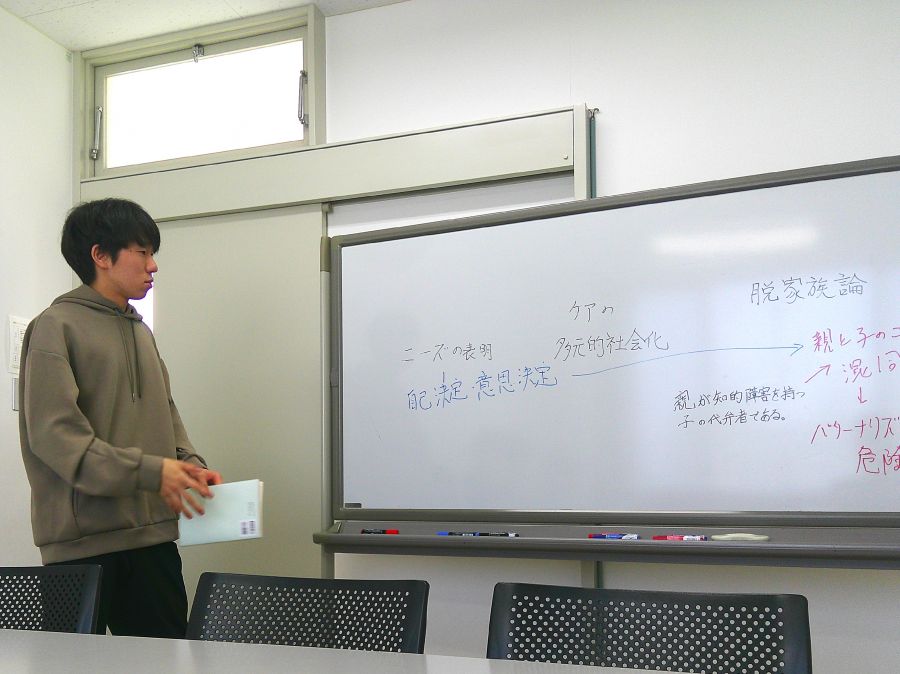 脱家族論
ケアの
多元的社会化
ニーズの表明
自己決定・意思決定
親と子のニ
混同
↓
パターナリズ
危険
親が知的障害を持つ
子の代弁者である。